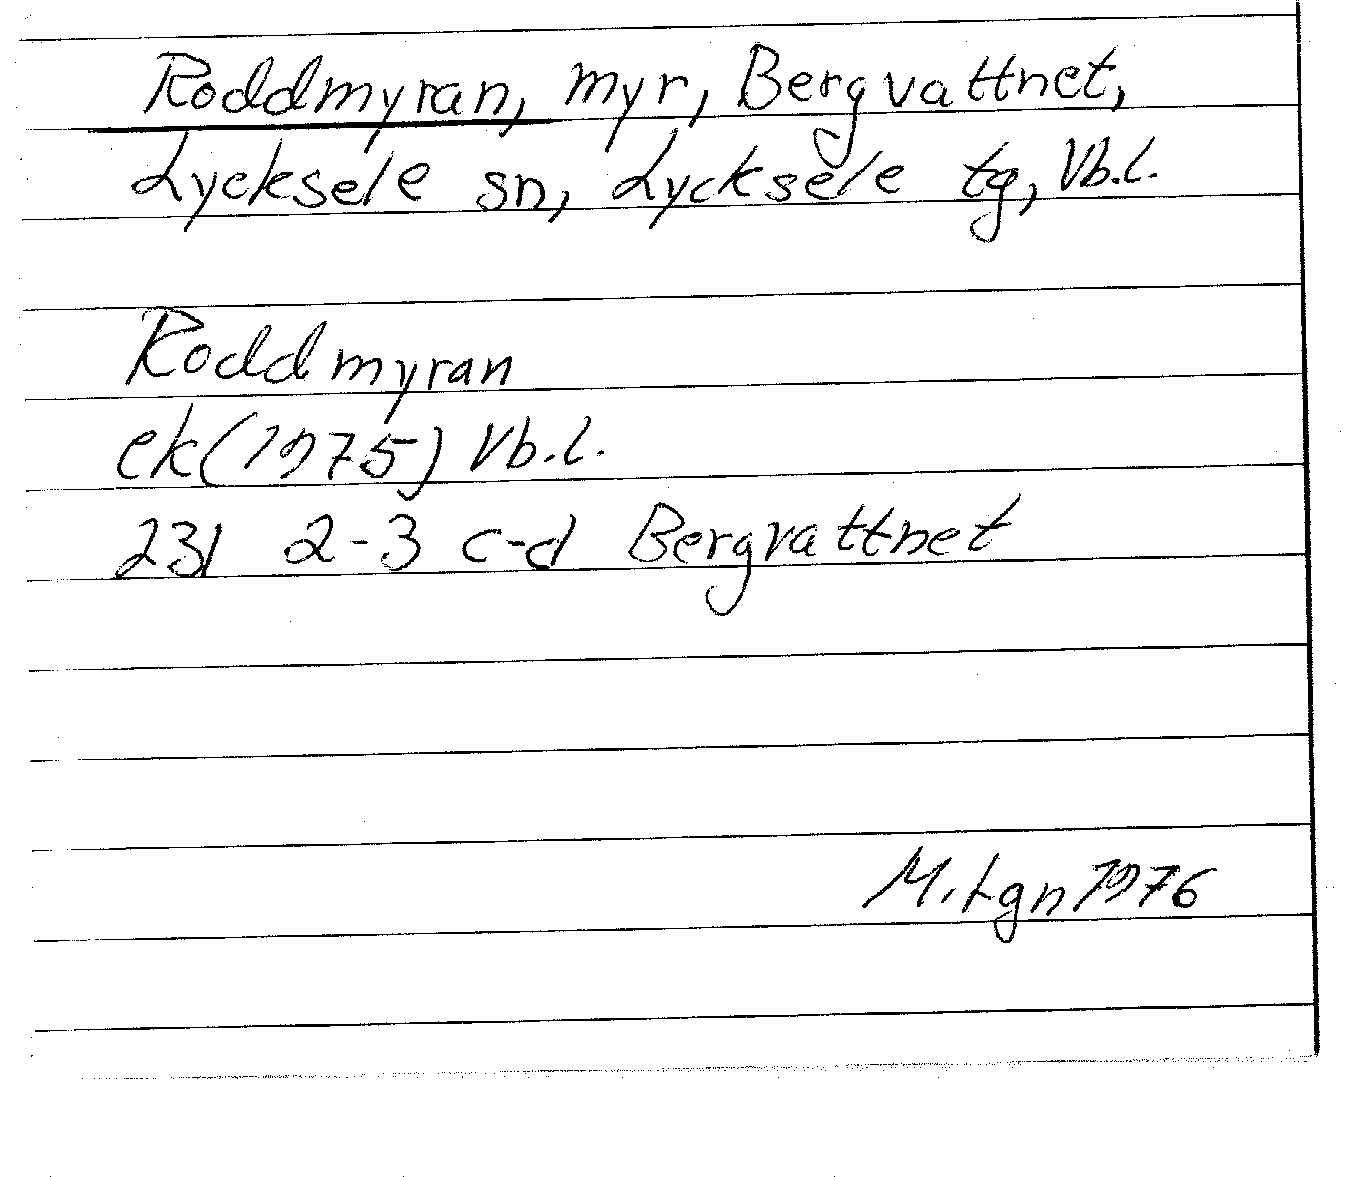 Roddmyran, myr, Bergvattnet,
Lycksele sn, Lycksele tg, Vb.l.
Roddmyran
ek (1975) Vb.l.
23I 2-3 c-d Bergvattnet
M. Lgn 1976